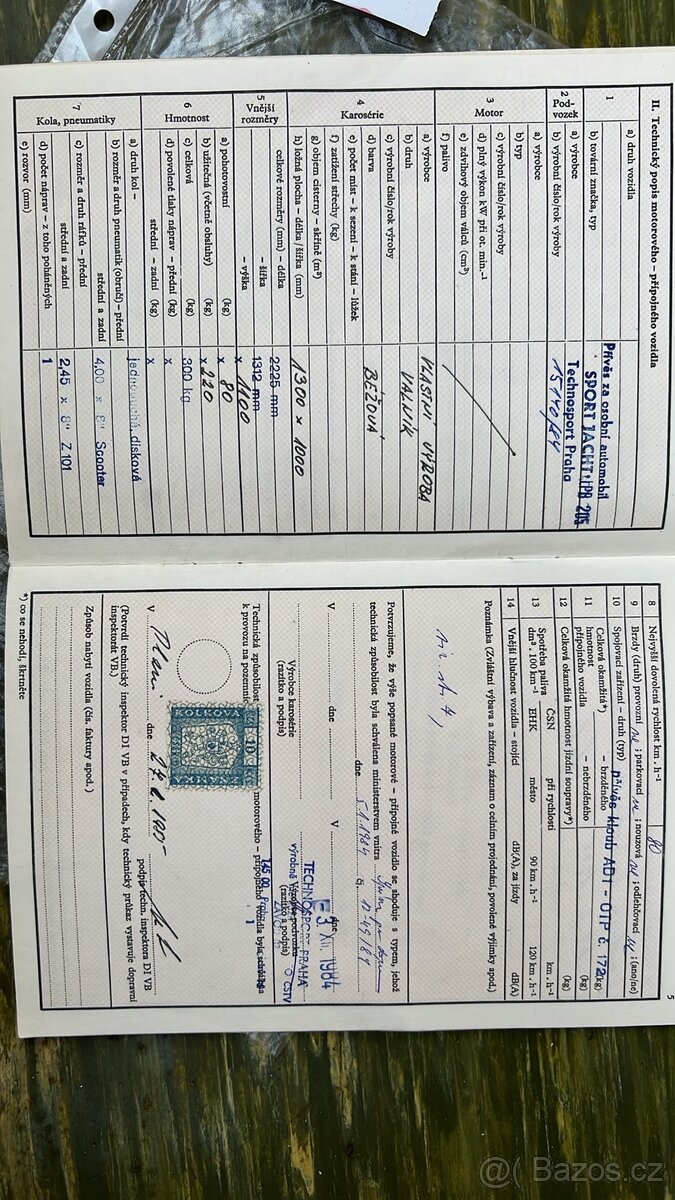 II. Technický popis motorového – přípojného vozidla
1
a) druh vozidla
Přívěs za osobní automobil
b) tovární značka, typ
SPORT JACHT
2 Pod-
vozek
a) výrobce
Technosport Praha
b) výrobní číslo/rok výroby
15140/84
3
Motor
a) výrobce
b) typ
c) výrobní číslo/rok výroby
d) plný výkon kW při ot. min.-1
e) zdvihový objem válců (cm³)
f) palivo
4
Karosérie
a) výrobce
VLASTNÍ VÝROBA
b) druh
VALNÍK
c) výrobní číslo/rok výroby
d) barva
BÉŽOVÁ
e) počet míst – k sezení – k stání – lůžek
f) zatížení střechy (kg)
g) objem cisterny – skříně (m³)
h) ložná plocha – délka/šířka (mm)
1300 x 1000
5
Vnější
rozměry
celkové rozměry (mm) – délka
2225 mm
– šířka
1312 mm
– výška
x 1100
6
Hmotnost
a) pohotovostní (kg)
x 80
b) užitečná (včetně obsluhy) (kg)
x 220
c) celková (kg)
300 kg
d) povolené tlaky náprav – přední (kg)
x
střední – zadní (kg)
x
7
Kola, pneumatiky
a) druh kol –
jednoduchá, disková
b) rozměr a druh pneumatik (obručí) – přední
střední a zadní
4,00 x 8" Scooter
c) rozměr a druh ráfků – přední
střední a zadní
2,45 x 8" Z 101
d) počet náprav – z toho poháněných
1
e) rozvor (mm)
5
8 Nejvyšší dovolená rychlost km . h-1
80
9 Brzdy (druh) provozní ne ; parkovací ne ; nouzová ne ; odlehčovací ne ; (ano/ne)
10 Spojovací zařízení – druh (typ) přívěs kloub AD 1 - OTP č. 172
11 Celková okamžitá*) – brzděného (kg)
hmotnost
přípojného vozidla – nebrzděného (kg)
12 Celková okamžitá hmotnost jízdní soupravy*) (kg)
13 Spotřeba paliva ČSN při rychlosti km . h-1
dm³ . 100 km-1 EHK město 90 km . h-1 120 km . h-1
14 Vnější hlučnost vozidla – stojící dB(A), za jízdy dB(A)
Poznámka (Zvláštní výbava a zařízení, záznam o celním projednání, povolené výjimky apod.)
viz str. 7,
Potvrzujeme, že výše popsané motorové – přípojné vozidlo se shoduje s typem, jehož
technická způsobilost byla schválena ministerstvem vnitra
dne 5.1.1984 č.
V dne
V dne
- 3. XII. 1984
TECHNOSPORT PRAHA
Výrobce karosérie
(razítko a podpis)
Výrobce podvozku
(razítko a podpis)
Technická způsobilost motorového – přípojného vozidla byla schválena
k provozu na pozemních
KOLKOVÁ
10 Kčs
ZNÁMKA
V Plzni dne
podpis techn. inspektora DI VB
(Potvrdí technický inspektor DI VB v případech, kdy technický průkaz vystavuje dopravní
inspektorát VB)
Způsob nabytí vozidla (čís. faktury apod.)
*) co se nehodí, škrtněte
@( Bazos.cz